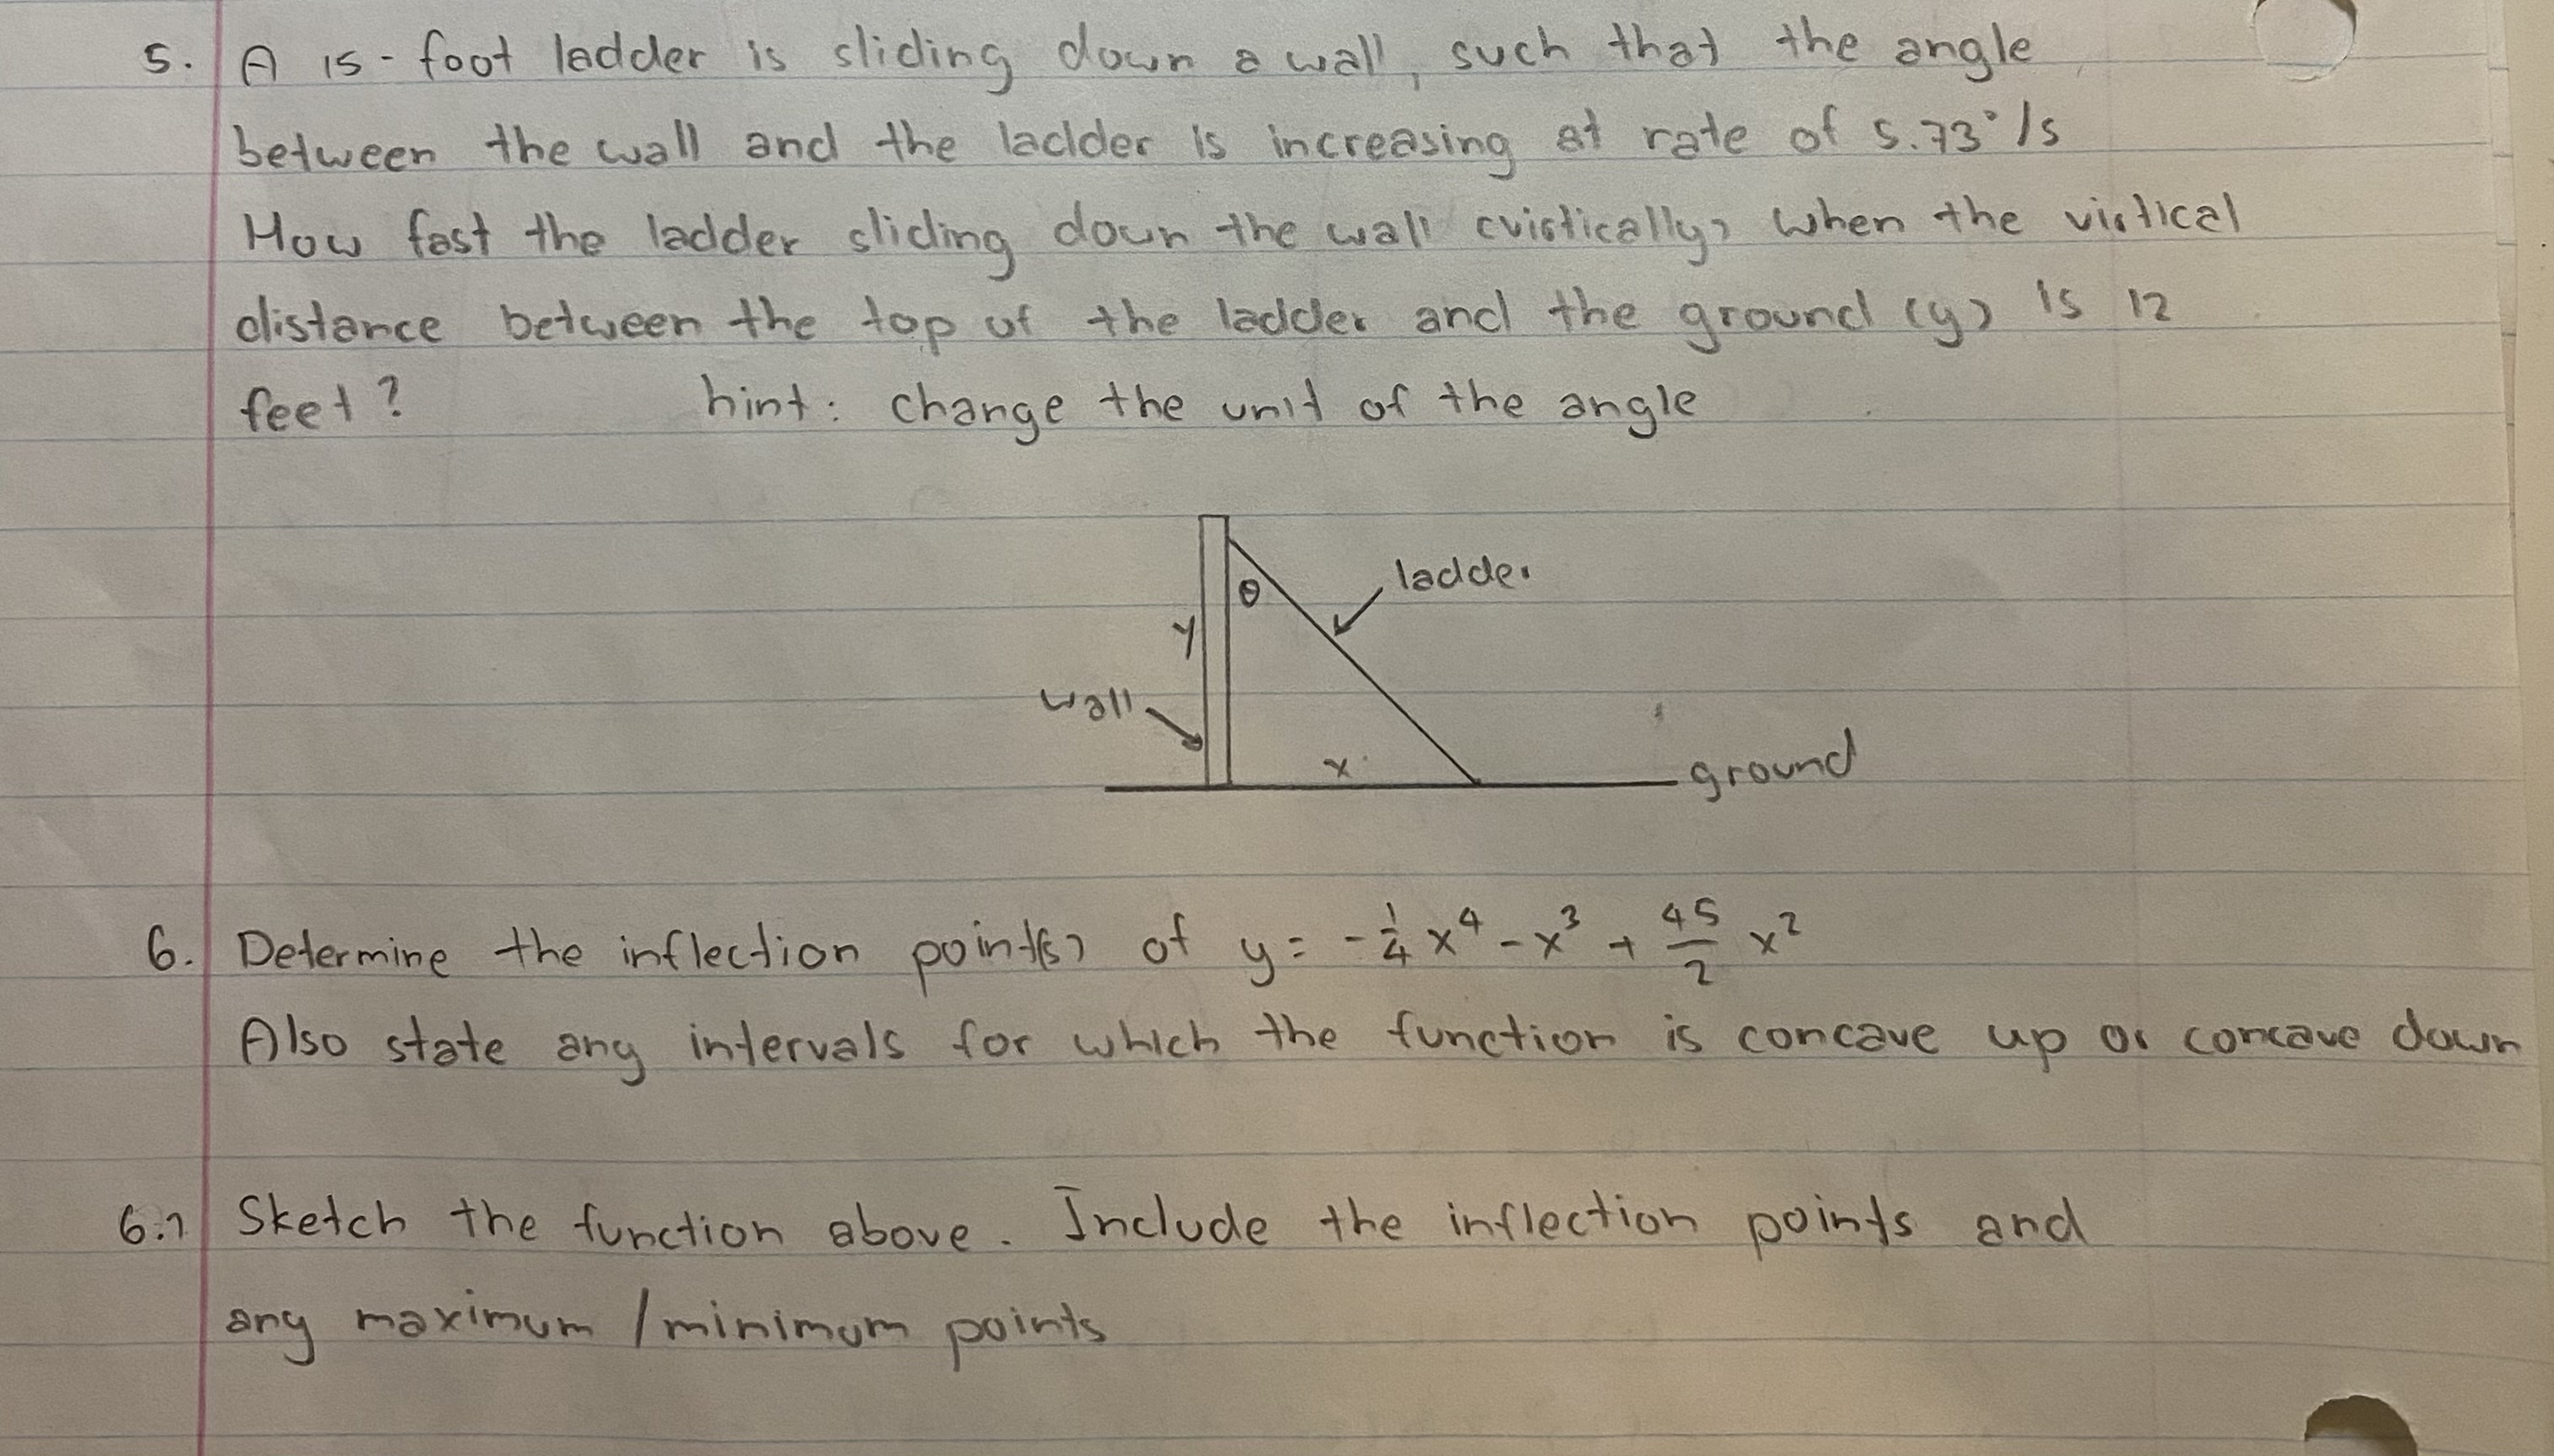 5. A 15-foot ladder is sliding down a wall, such that the angle
between the wall and the ladder is increasing at rate of 5.73°/s
How fast the ladder sliding down the wall (vistically) when the vistical
distance between the top of the ladder and the ground (y) is 12
feet? hint: change the unit of the angle
θ
ladder
y
wall
x
ground
6. Determine the inflection point(s) of y = -1/4 x⁴ - x³ + 45/2 x²
Also state any intervals for which the function is concave up or concave down
6.1 Sketch the function above. Include the inflection points and
any maximum / minimum points